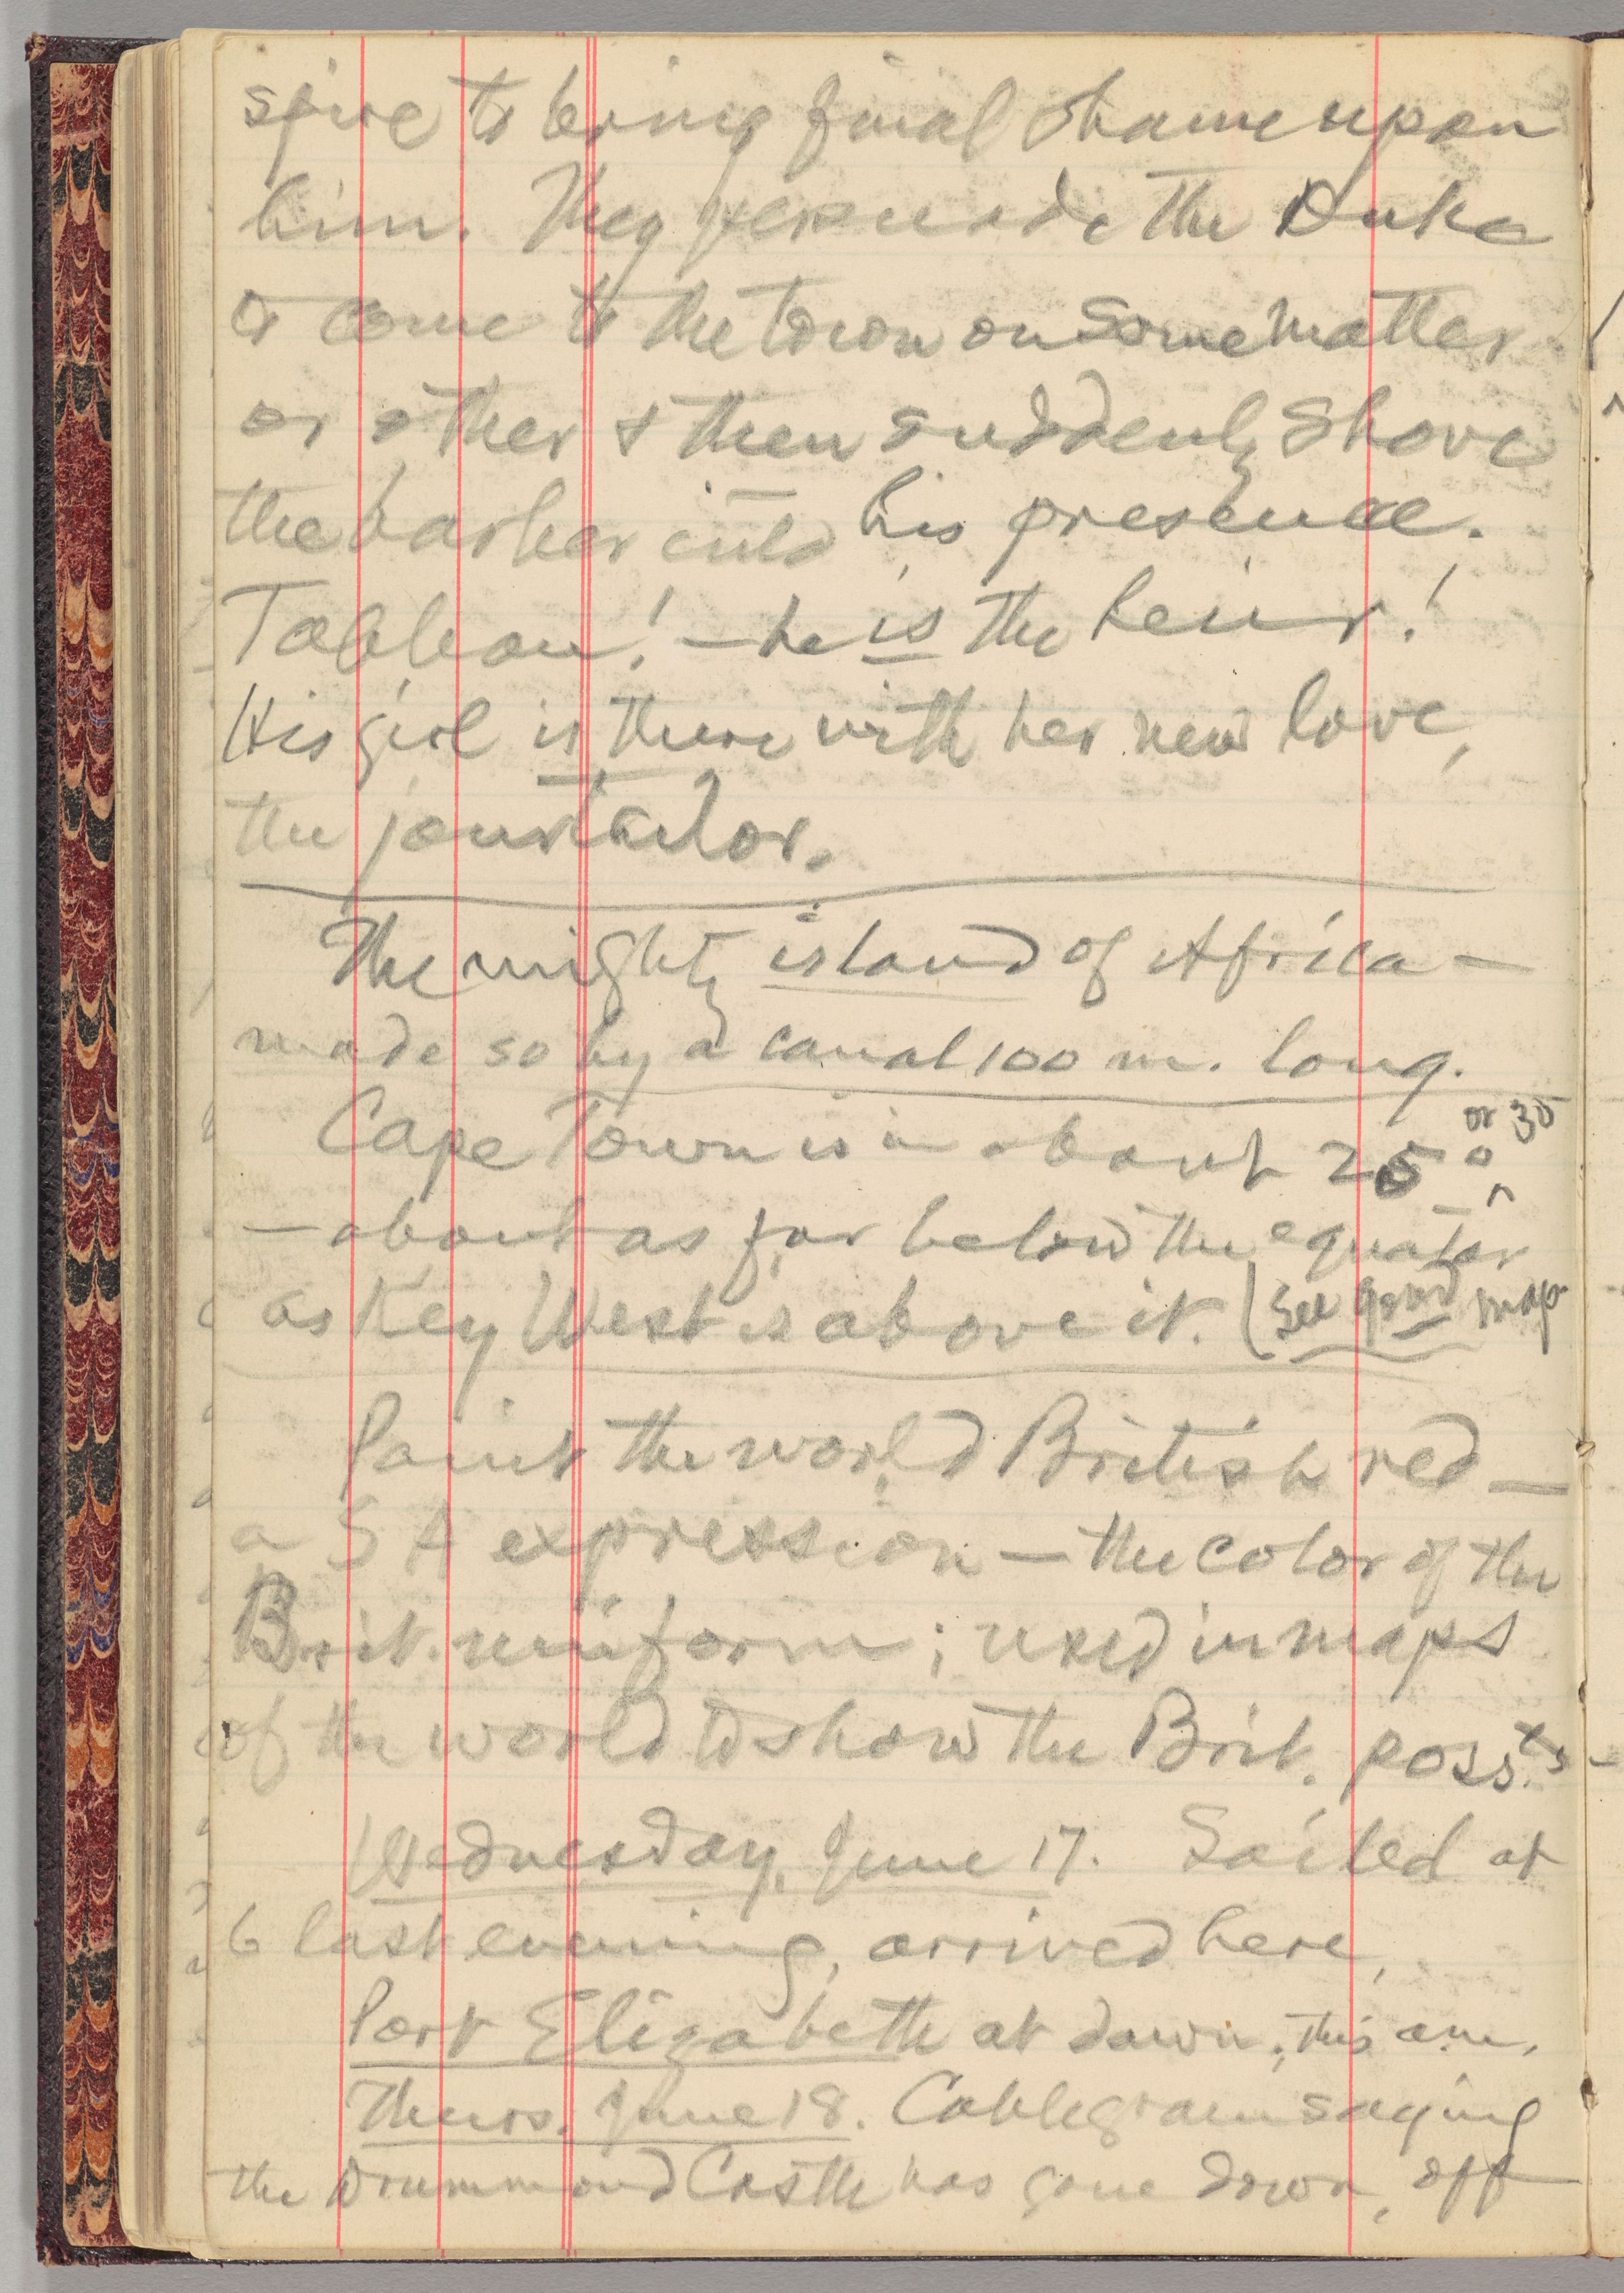 spire to bring final shame upon
him. They persuade the Duke
to come to the town on some matter
or other & then suddenly shove
the barber into his presence.
Tableau! — he is the heir!
His girl is there with her new love,
the jour tailor.
The mighty island of Africa —
made so by a canal 100 m. long.
Cape Town is in about 25° or 35
— about as far below the equator
as Key West is above it. (See good map
Paint the world British red —
a S A expression — the color of the
Brit. uniform; used in maps
of the world to show the Brit. poss
Wednesday, June 17. Sailed at
6 last evening, arrived here,
Port Elizabeth at dawn, this am.
Thurs. June 18. Cablegram saying
the Drummond Castle has gone down, off